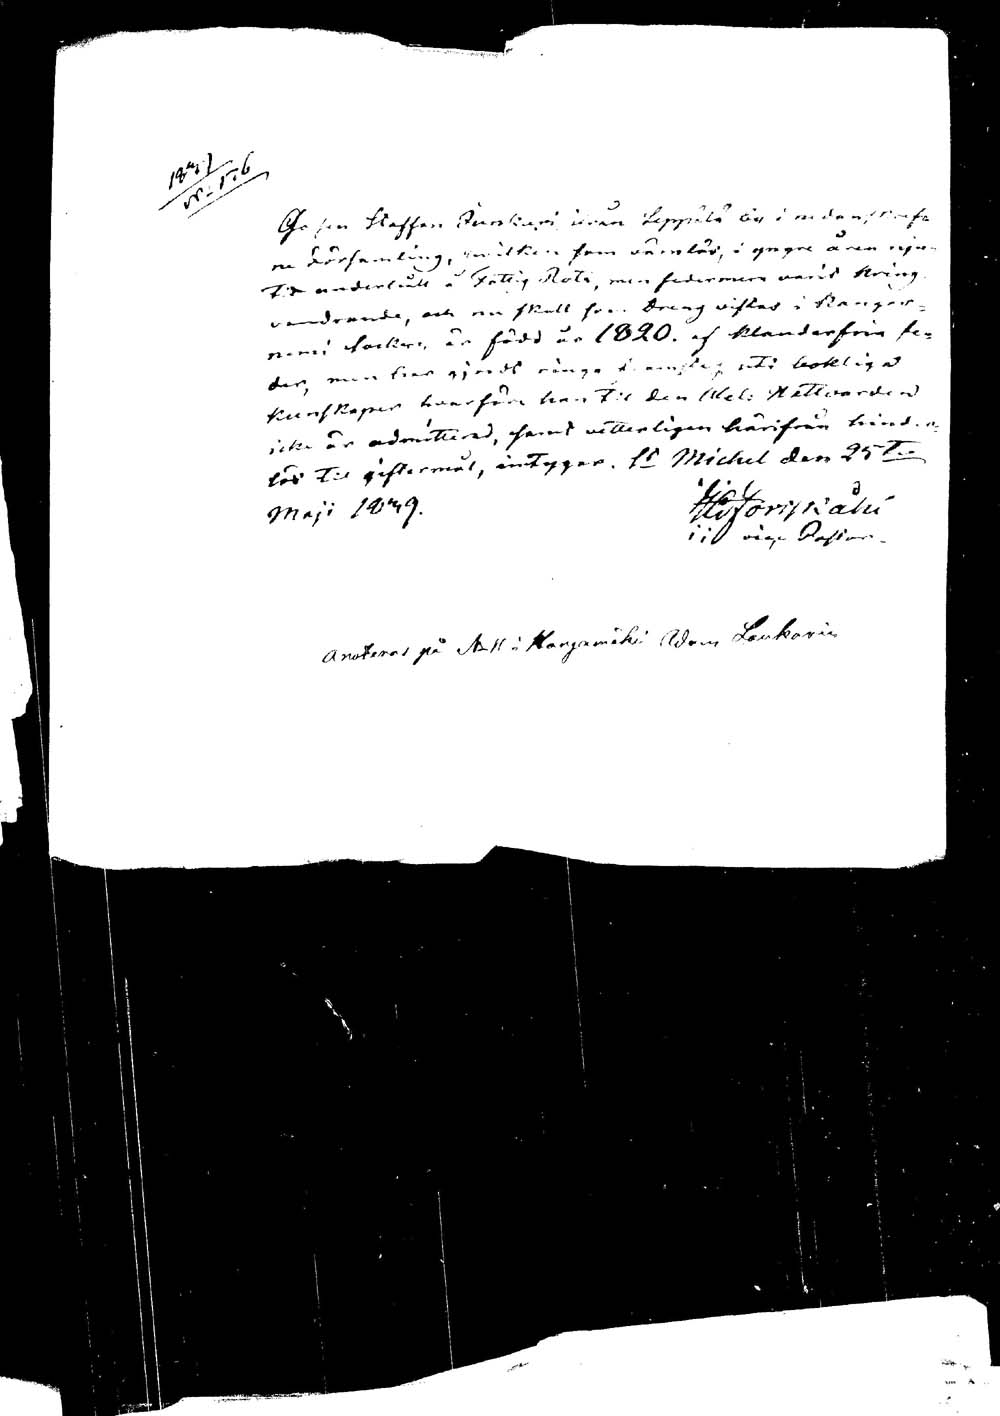 1849
N: 176
Gossen Staffan Junkari ifrån Leppälä by i nedanskref-
ne Församling, hvilken som värnlös, i yngre åren nju-
tit underhåll å Fattig Rote, men sedermera varit kring-
vandrande, och nu skall som dreng vistas i Kangas-
niemi Socken, är född år 1820. af klanderfria se-
der, men har gjordt ringa framsteg uti bokliga
kunskaper hvarföre han til den Hel: Nattvarden
icke är admitterad, samt vetterligen härifrån hinder-
lös til giftermål, intygar. St Michel den 25te
Maji 1849.
vice Pastor.
Anoteras på N 11 i Kangasmäki Adam Laukarin